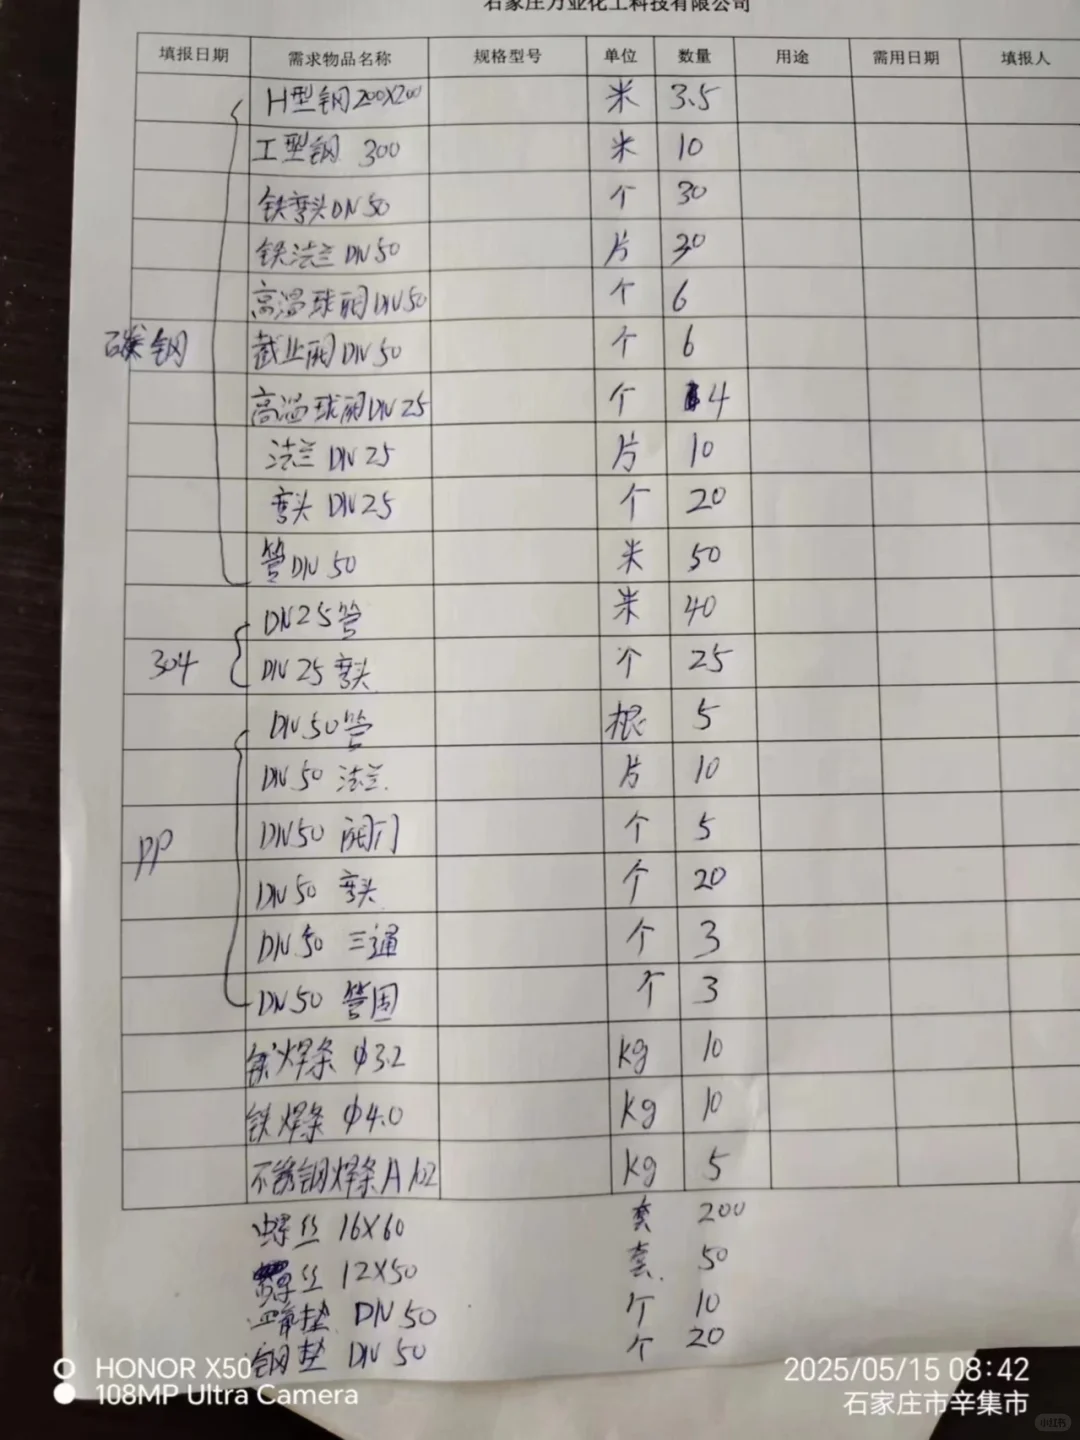 石家庄万业化工科技有限公司
填报日期 需求物品名称 规格型号 单位 数量 用途 需用日期 填报人
H型钢200X200 米 3.5
工型钢 300 米 10
铁弯头DN50 个 30
铁法兰 DN50 片 30
高温球阀DN50 个 6
碳钢 截止阀DN50 个 6
高温球阀DN25 个 4
法兰 DN25 片 10
弯头 DN25 个 20
管DN50 米 50
DN25管 米 40
304 DN25弯头 个 25
DN50管 根 5
DN50 法兰 片 10
PP DN50 阀门 个 5
DN50 弯头 个 20
DN50 三通 个 3
DN50 管固 个 3
铁焊条 φ3.2 kg 10
铁焊条 φ4.0 kg 10
不锈钢焊条A102 kg 5
螺丝 16X60 套 200
螺丝 12X50 套 50
垫 DN50 个 10
钢垫 DN50 个 20
HONOR X50
108MP Ultra Camera
2025/05/15 08:42
石家庄市辛集市
小红书